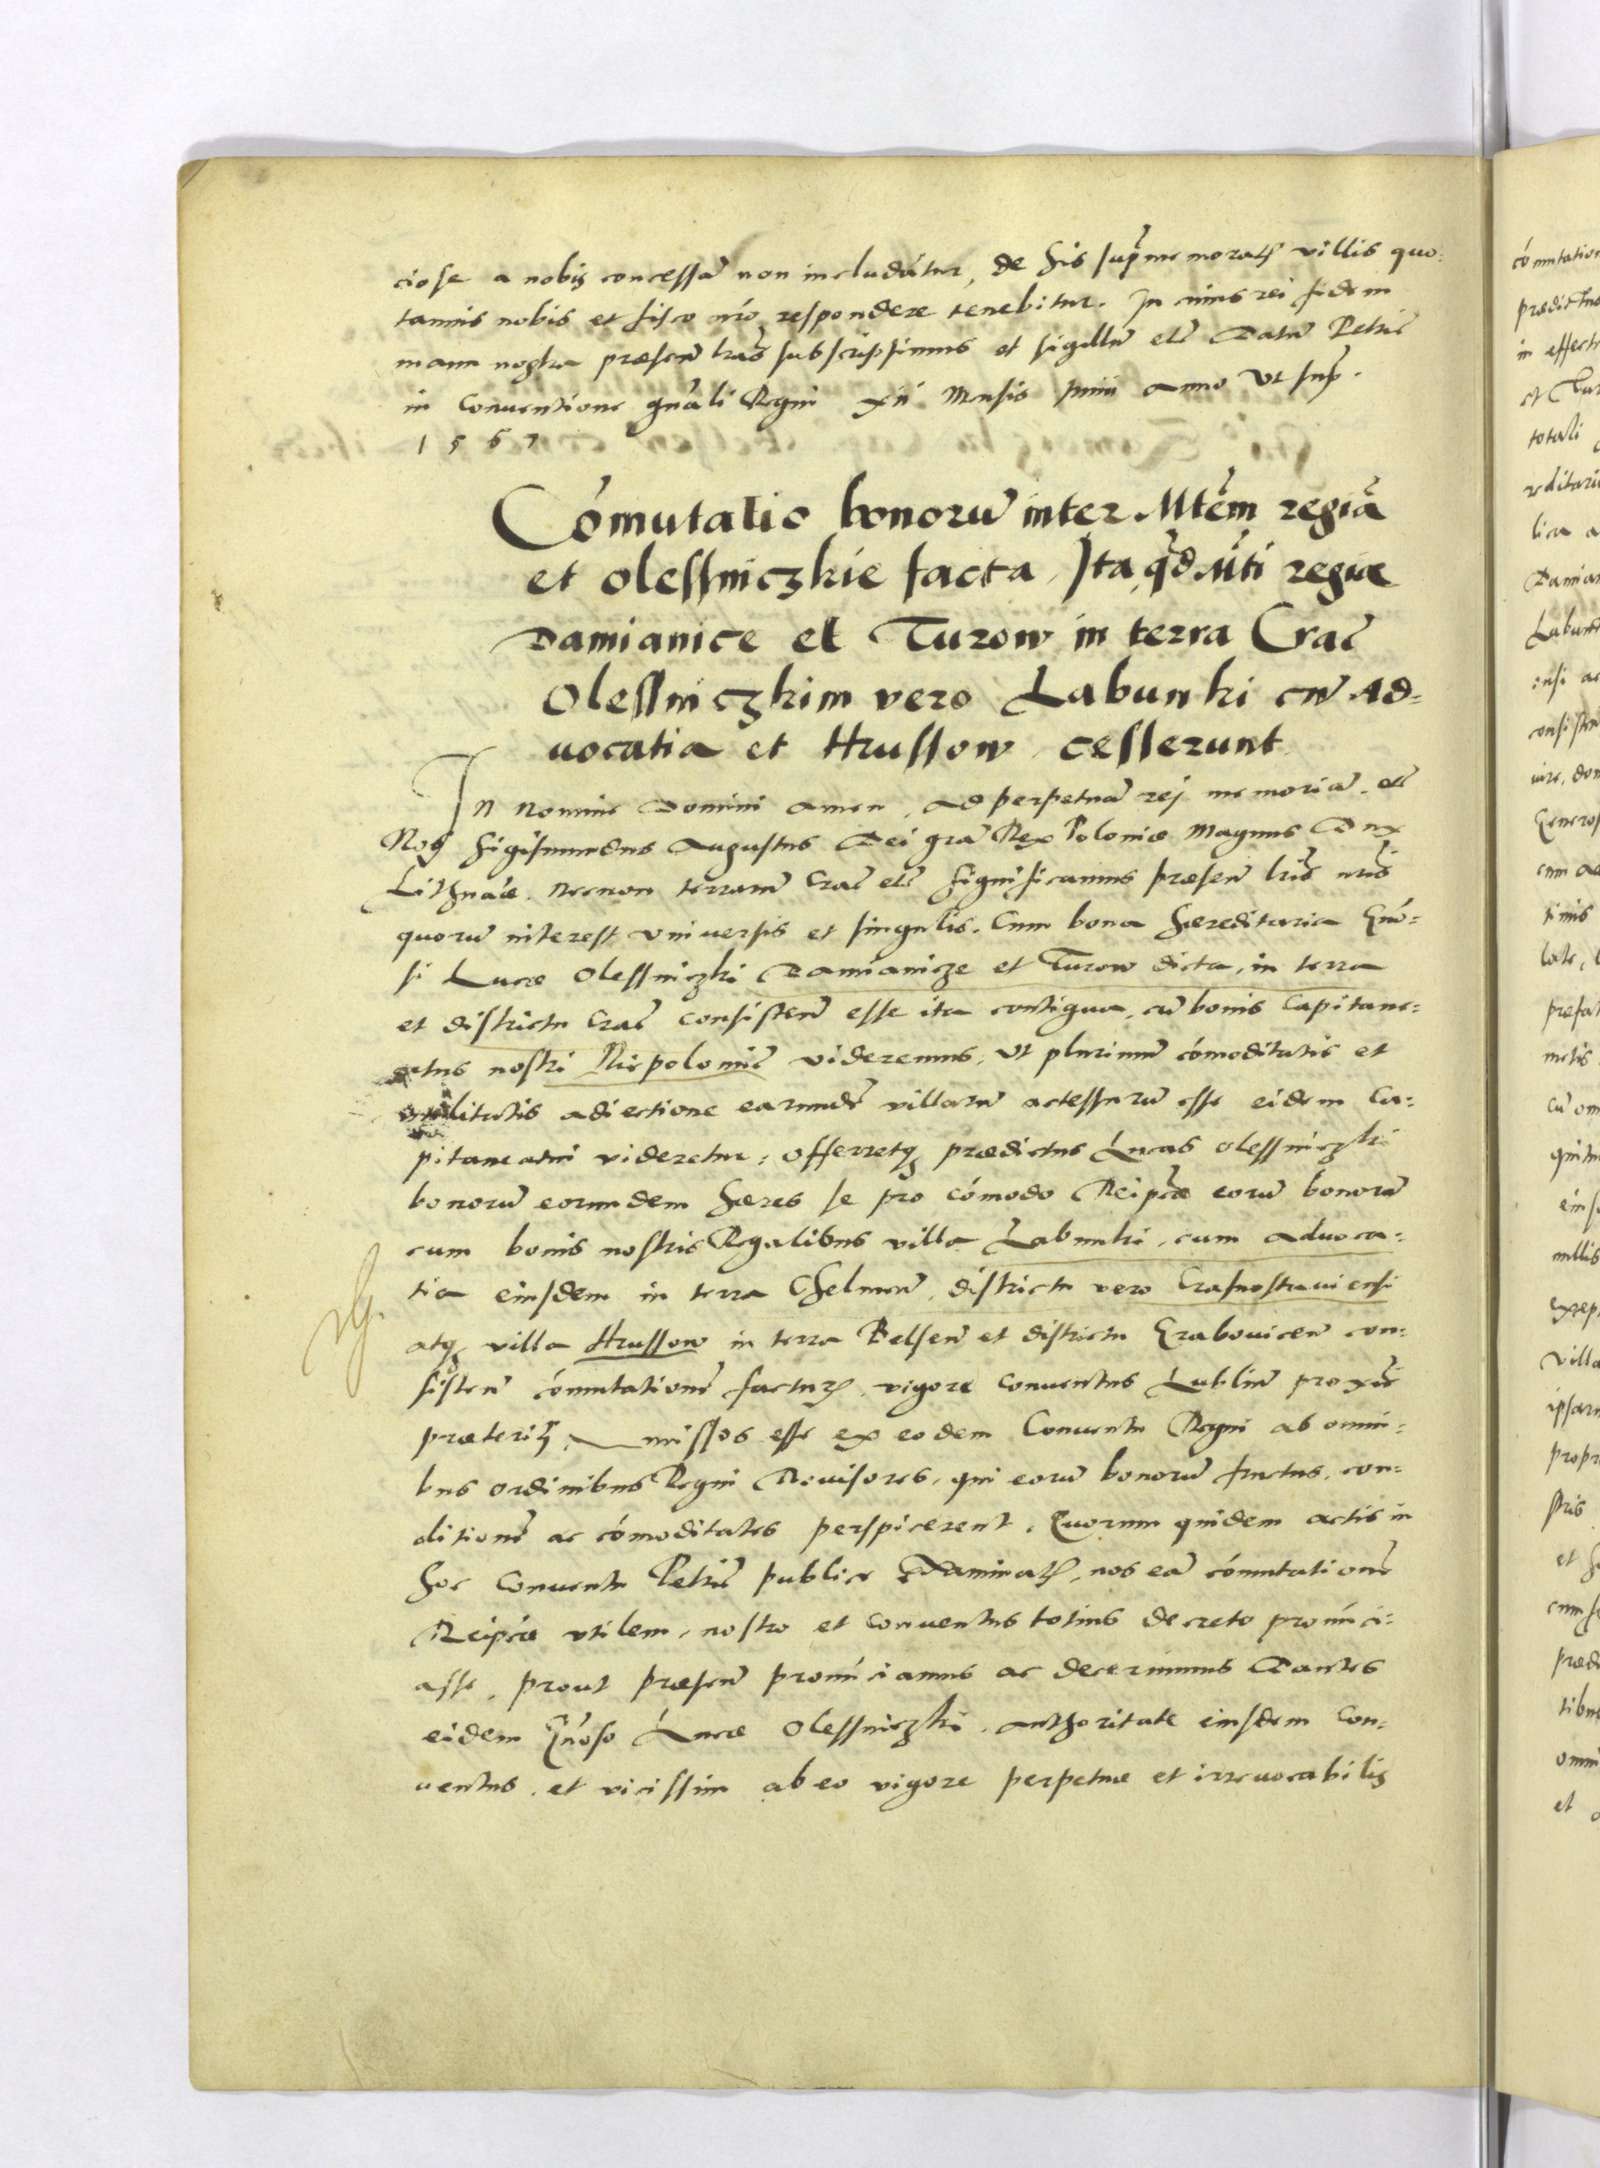 ciose a nobis concessã non includãtur, de his suprãmemorat villis quo-
tannis nobis et fisco nřo respondere tenebitur. In cuius rei fidem
manu nostra præsen lras subscripsimus et sigillũ etc̃ Datũ Petric̃
in Conuentione gnãli Regni xii Mensis Junii Anno Vt supr̃.
1567
Cõmutatio bonorũ inter Mtẽm regiã
et olessniczkie facta, Ita qd̃ Mti regiæ
Damianice et Turow in terra Crac̃
Olessniczkim vero Labunki cũ Ad-
uocatia et Hrussow cesserunt
In Nomine Domini Amen. Ad perpetuã rej memoriã. etc̃
Nos Sigismundus Augustus Dei grã Rex Poloniæ Magnus Dux
Lithuãiæ. Necnon terrarũ Crac̃ etc̃ Significamus præsen lris nris
quorũ interest vniuersis et singulis. Cum bona hæreditaria Gnõ-
si Lucæ Olessniczki Damianicze et Turow dicta, in terra
et districtu Crac̃ consisten̄ esse ita contigua, cũ bonis Capitane-
atus nostri Niepolomic̃ videremus, Vt plurimũ cõmoditatis et
vtilitatis adiectione earundẽ villarũ accessurũ esse eidem Ca-
pitaneatui videretur: offerretq prædictus Lucas Olessniczki
bonorũ eorundem hæres se pro cõmodo Reipcæ eorũ bonorũ
cum bonis nostris Regalibus villa Labunki, cum aduoca-
tia eiusdem in terra Chelmen̄, districtu vero Crasnostauiensi
atq villa Hrussow in terra Belsen̄ et districtu Grabouicen̄ con-
sisten̄ cõmutationẽ factur, vigore conuentus Lublin̄ proxĩe
præteriti, missos esse ex eodem Conuentu Regni ab omni-
bus ordinibus Regni Reuisores, qui eorũ bonorũ fructus, con-
ditionẽ ac cõmoditates perspicerent, Quorum quidem actis in
hoc Conuentu Petric̃ publice Examinat, nos eã cõmutationẽ
Reipcæ vtilem, nostro et conuentus totius decreto pronũci-
asse, prout præsen̄ pronũciamus ac decernimus Dantes
eidem Gnõso Lucæ Olessniczki, authoritate eiusdem Con-
uentus, et vicissim ab eo vigore perpetuæ et irreuocabilis